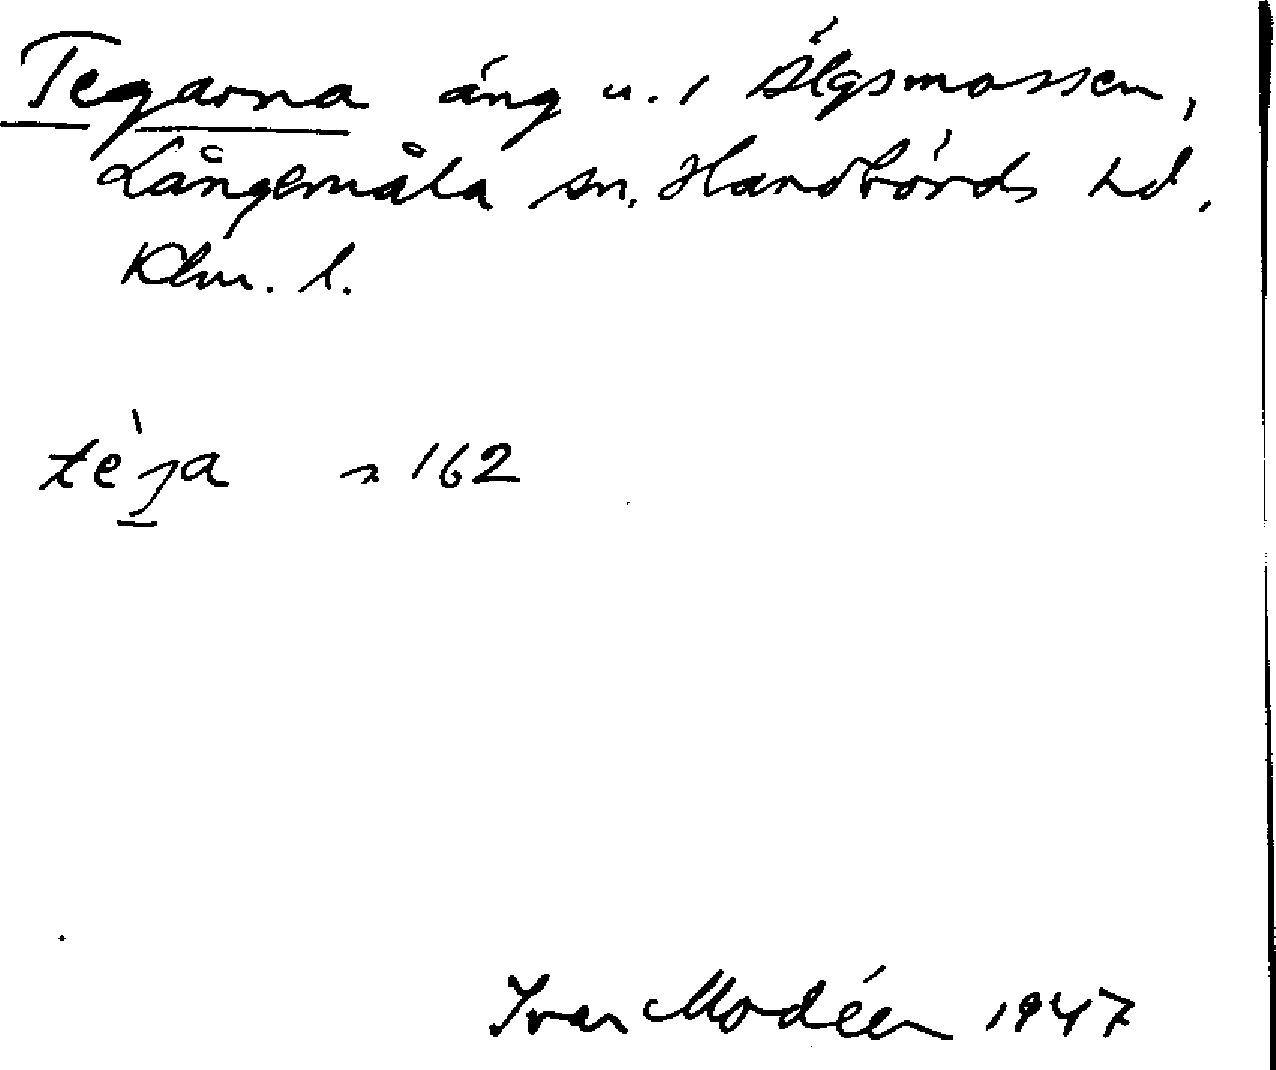 Tegarna äng u. 1 Älgsmossen,
Långemåla sn. Handbörds hd.
Klm. l.
té̱ja n 162
Ivar Modéer 1947